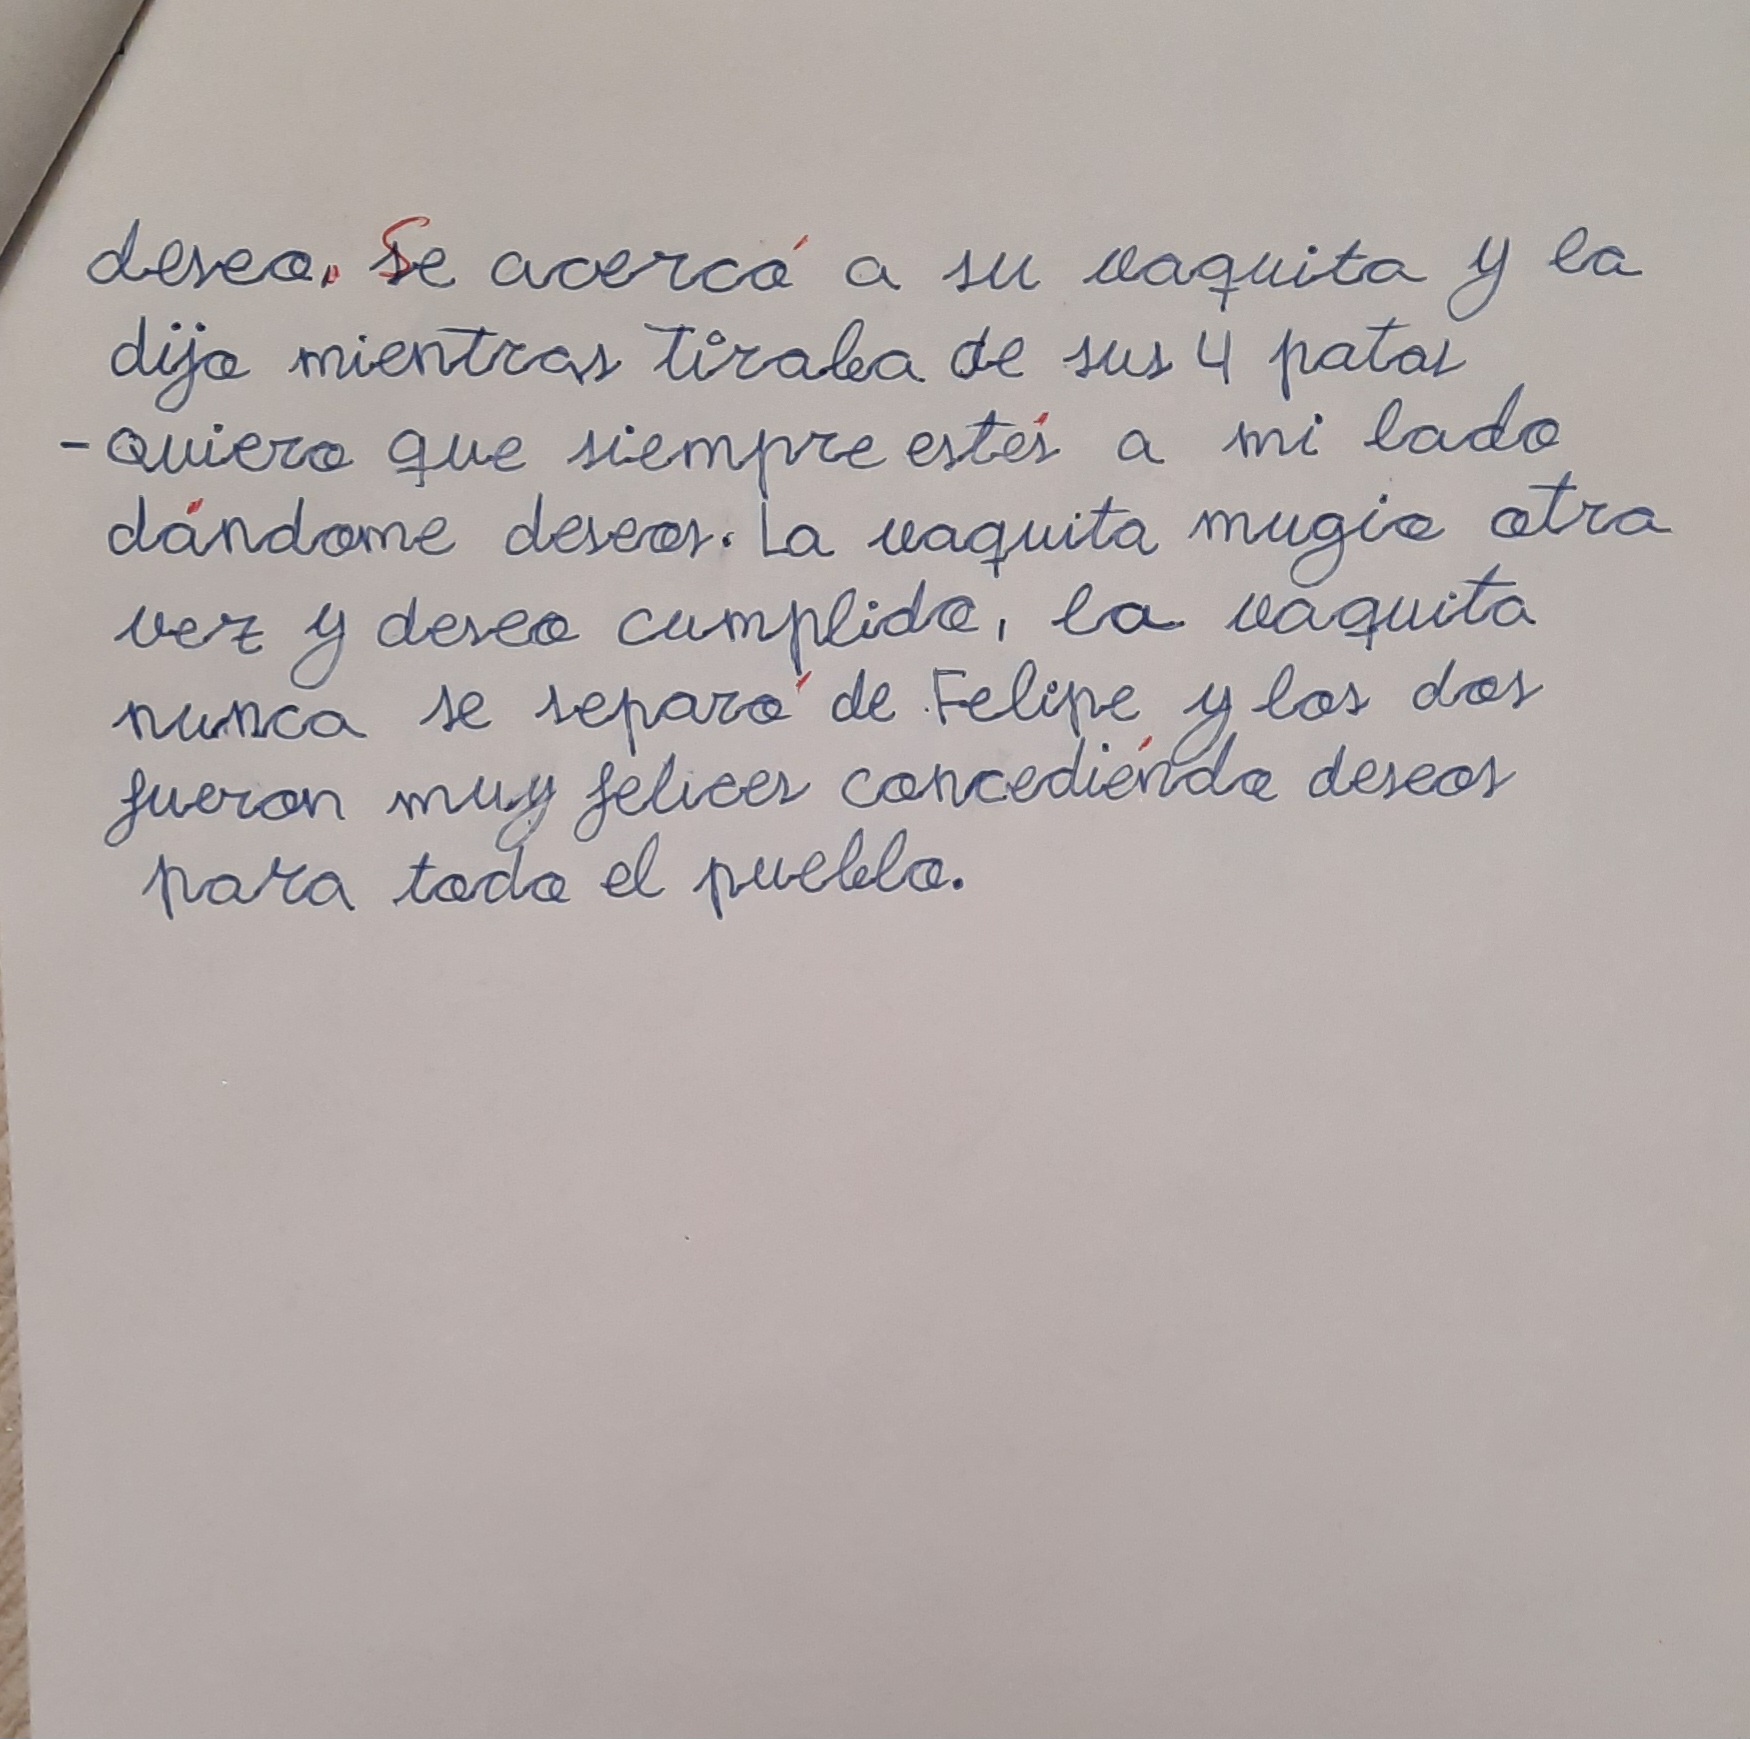 deseo. Se acercó a su vaquita y la
dijo mientras tiraba de sus 4 patas
-Quiero que siempre estés a mi lado
dándome deseos. La vaquita mugio otra
vez y deseo cumplido, la vaquita
nunca se separó de Felipe y los dos
fueron muy felices concediéndo deseos
para todo el pueblo.